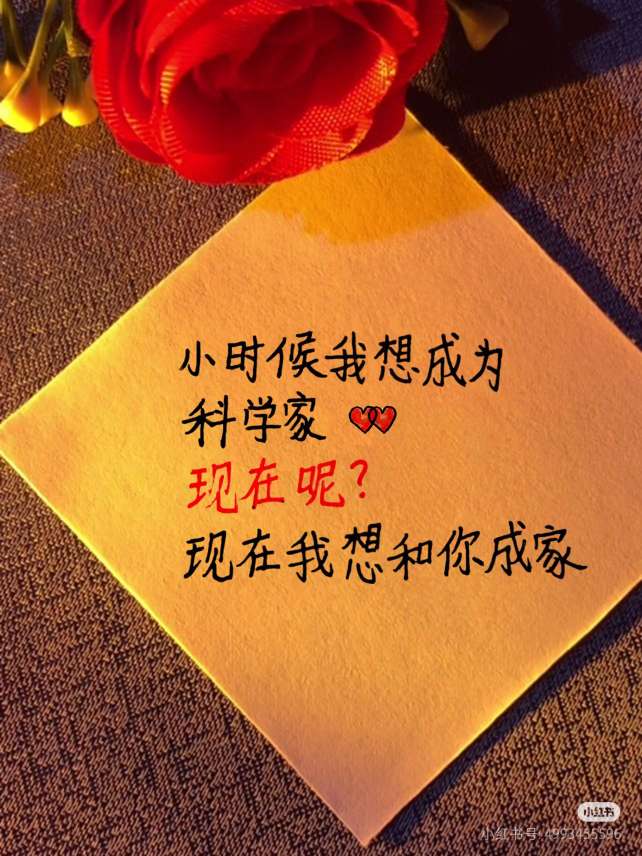 小时候我想成为
科学家
现在呢?
现在我想和你成家
小红书
小红书号: 4993455596